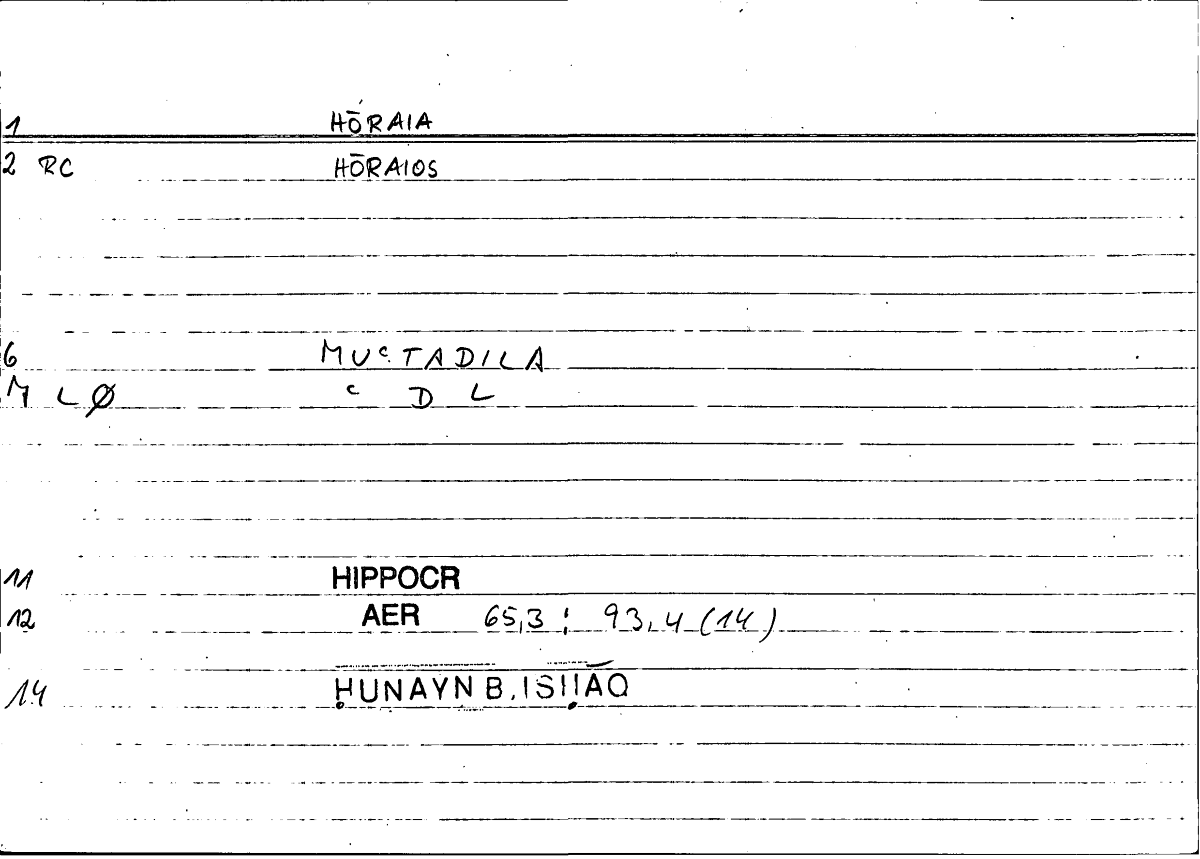 1 HŌRAIA
2 RC HŌRAIOS
6 MUᶜTADILA
M L Ø ᶜ D L
11 HIPPOCR
12 AER 65,3 ; 93,4 (14)
14 ḤUNAYN B. ISḤĀQ